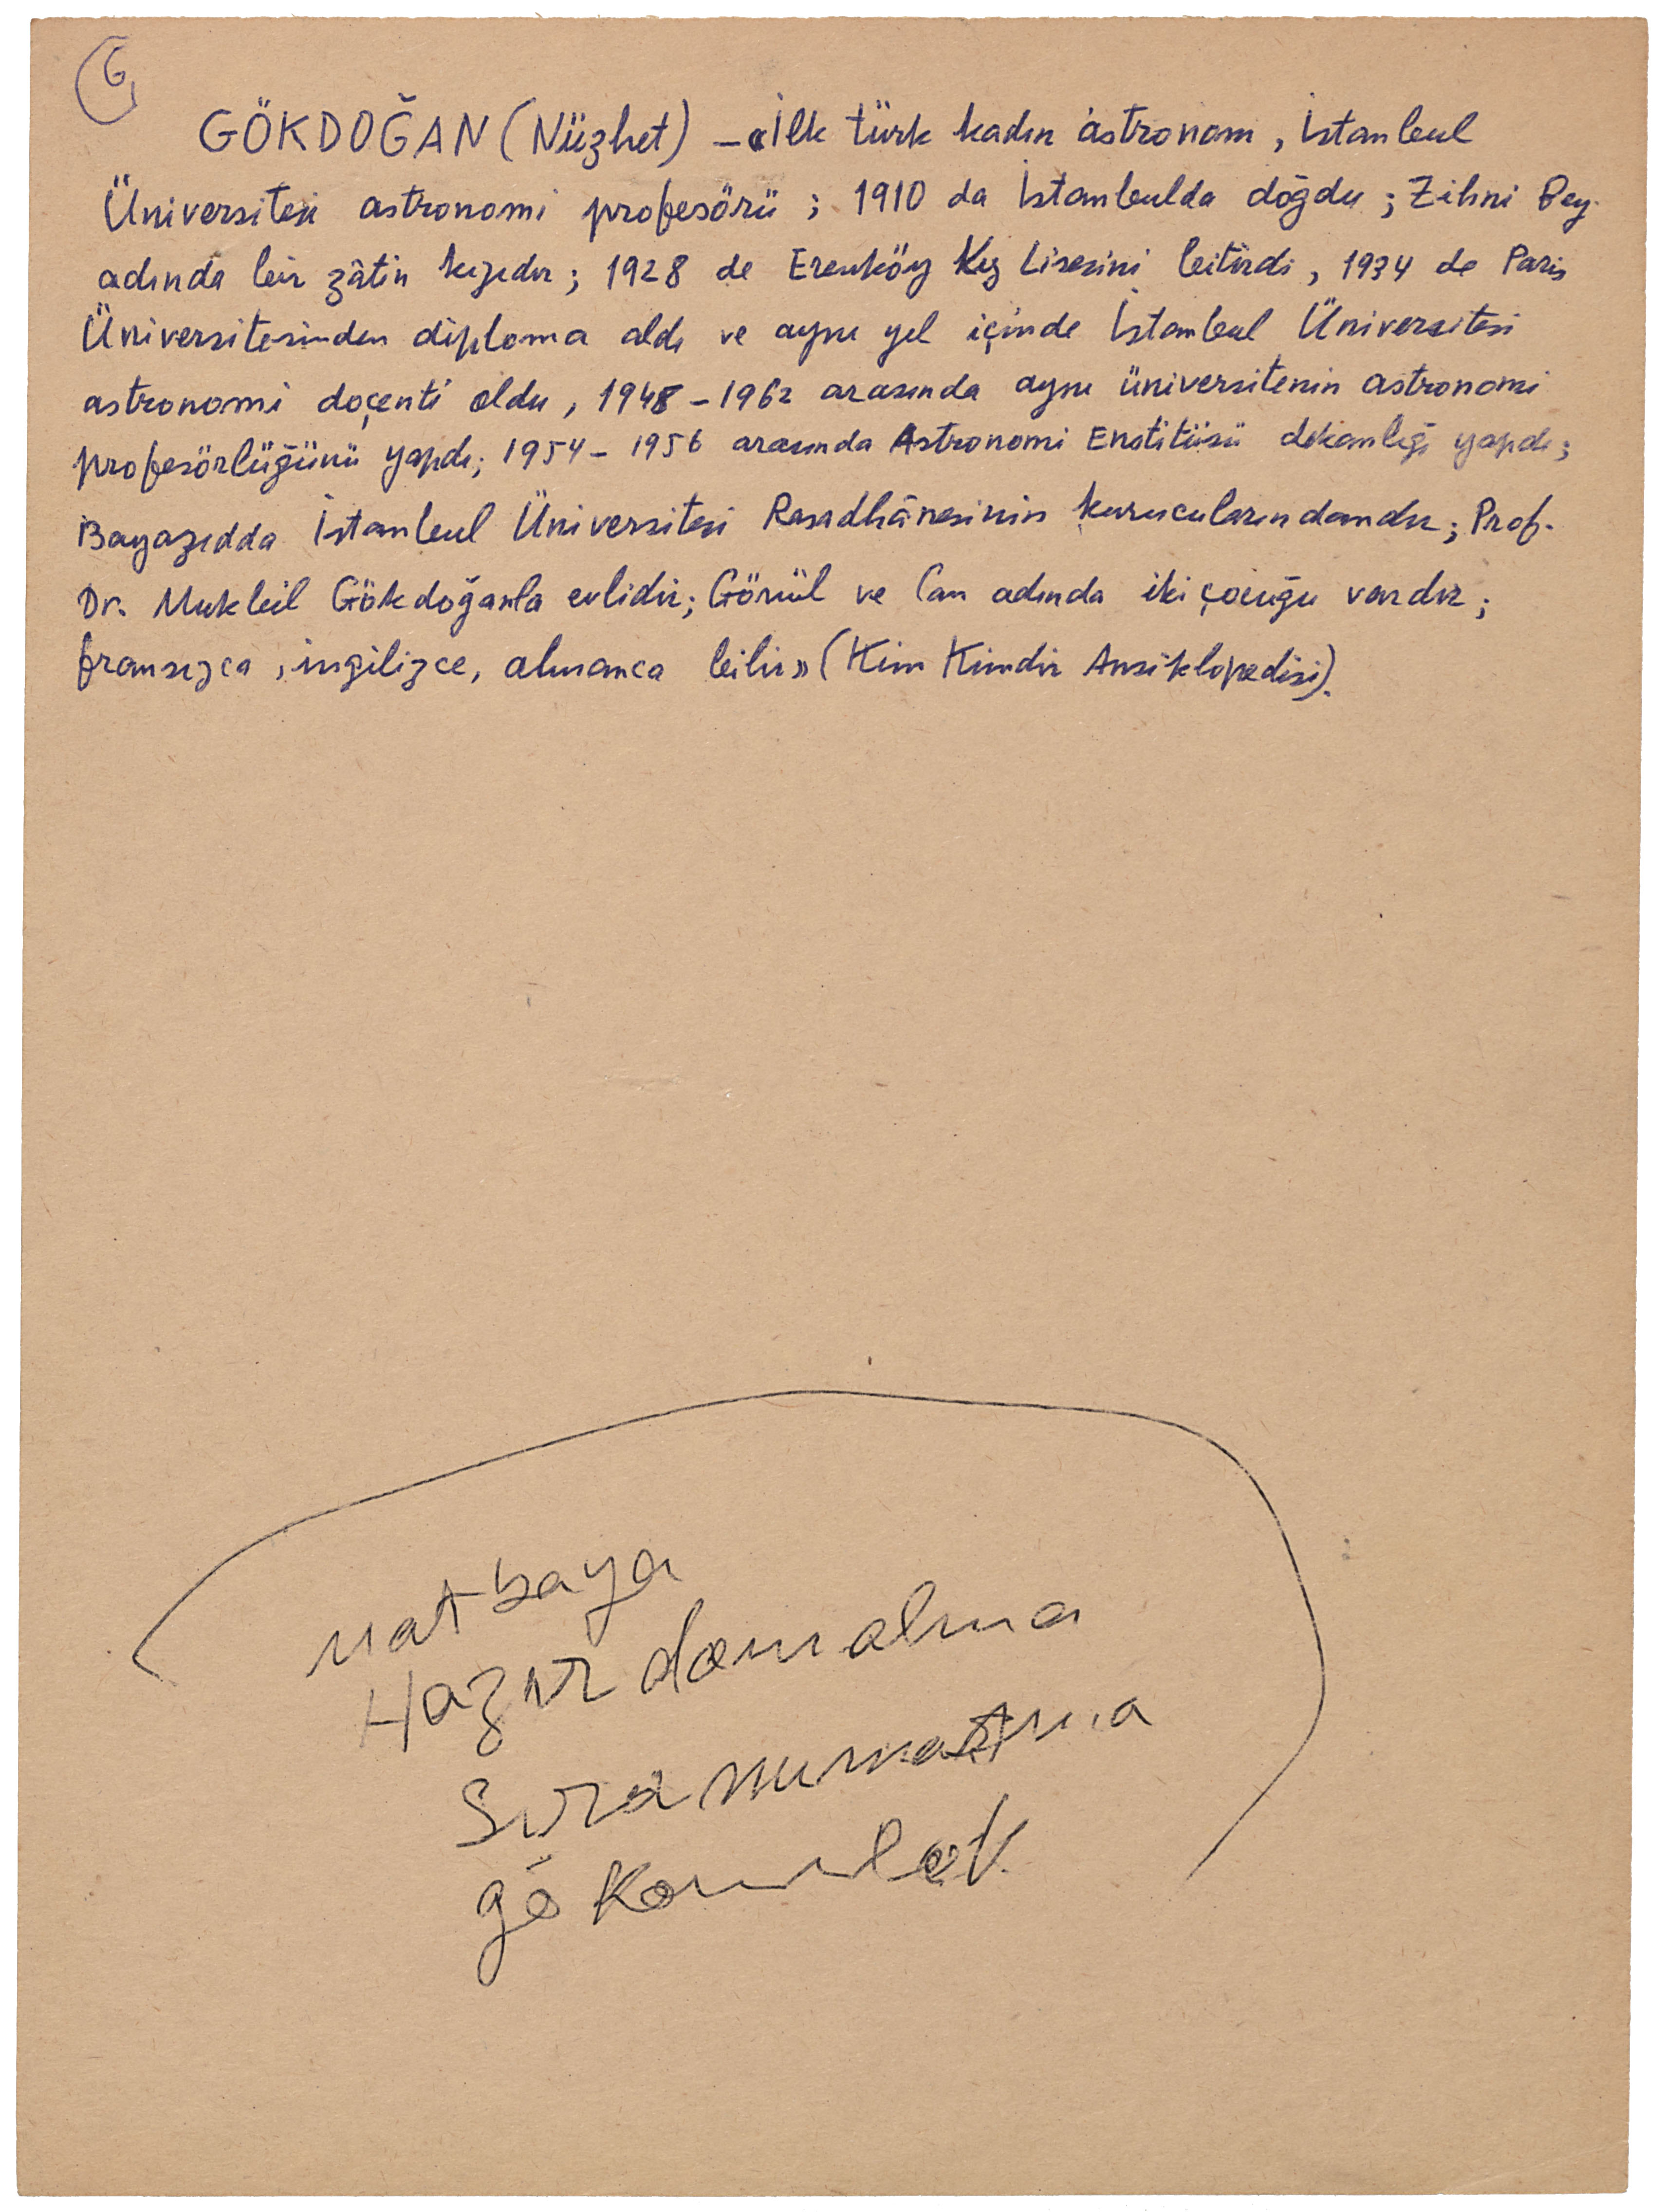 G
GÖKDOĞAN (Nüzhet) — «İlk türk kadın astronom, İstanbul
Üniversitesi astronomi profesörü; 1910 da İstanbulda doğdu; Zihni Bey
adında bir zâtin kızıdır; 1928 de Erenköy Kız Lisesini bitirdi, 1934 de Paris
Üniversitesinden diploma aldı ve aynı yıl içinde İstanbul Üniversitesi
astronomi doçenti oldu, 1948-1962 arasında aynı üniversitenin astronomi
profesörlüğünü yapdı; 1954-1956 arasında Astronomi Enstitüsü dekanlığı yapdı;
Bayazıdda İstanbul Üniversitesi Rasadhânesinin kurucularındandır; Prof.
Dr. Mukbil Gökdoğanla evlidir; Gönül ve Can adında iki çocuğu vardır;
fransızca, ingilizce, almanca bilir» (Kim Kimdir Ansiklopedisi).
matbaya
Hazır
Sıra
konulcak